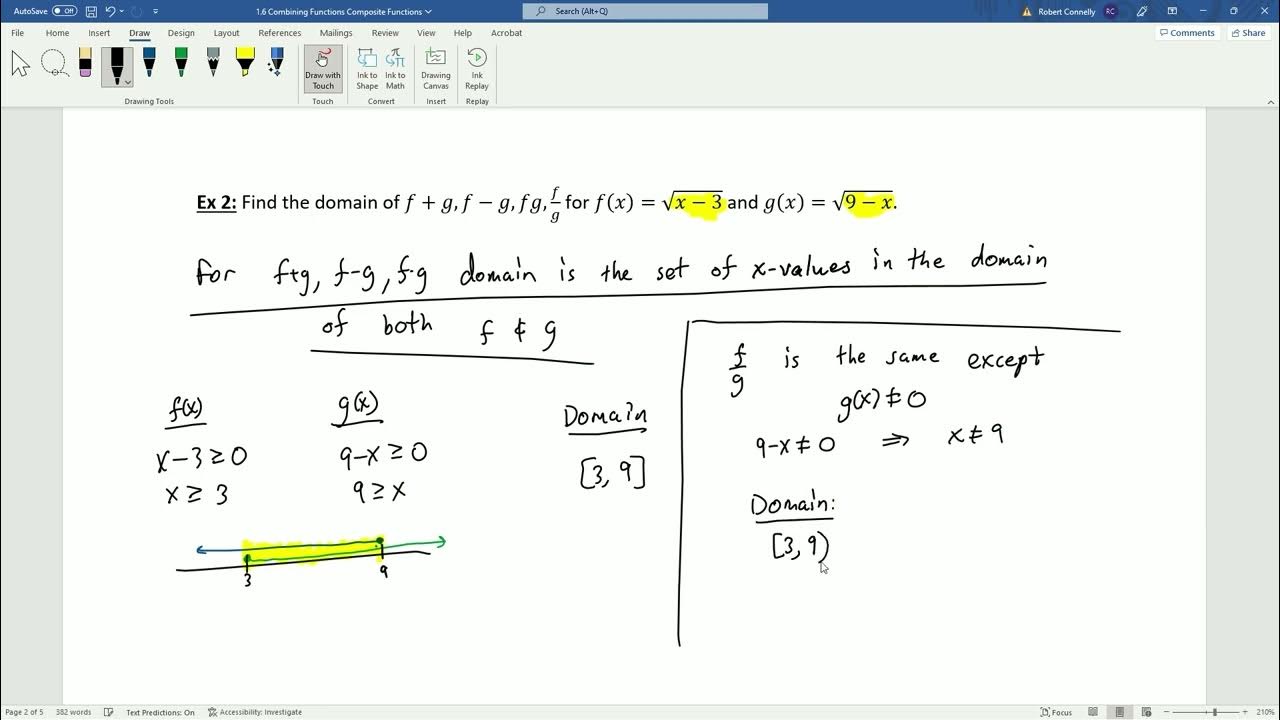 AutoSave Off 1.6 Combining Functions Composite Functions Search (Alt+Q) Robert Connelly RC
File Home Insert Draw Design Layout References Mailings Review View Help Acrobat Comments Share
Draw with Touch Ink to Shape Ink to Math Drawing Canvas Ink Replay
Drawing Tools Touch Convert Insert Replay
Ex 2: Find the domain of f + g, f − g, fg, f/g for f(x) = √(x − 3) and g(x) = √(9 − x).
For f+g, f-g, f·g domain is the set of x-values in the domain
of both f & g
f(x)
x-3 ≥ 0
x ≥ 3
g(x)
9-x ≥ 0
9 ≥ x
Domain
[3, 9]
3 9
f/g is the same except
g(x) ≠ 0
9-x ≠ 0 ⇒ x ≠ 9
Domain:
[3, 9)
Page 2 of 5 382 words Text Predictions: On Accessibility: Investigate Focus 210%